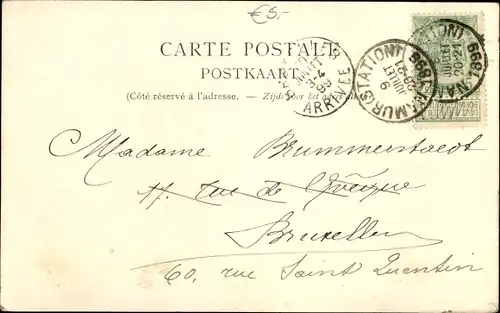 €5.-
CARTE POSTALE
POSTKAART
(Côté réservé à l'adresse. - Zijde voor het adres
ARRIVÉE
NAMUR (STATION)
9
JUILT
20-21
1899
Madame Brummerstaedt
17. rue de
Bruxelles
60, rue Saint Quentin